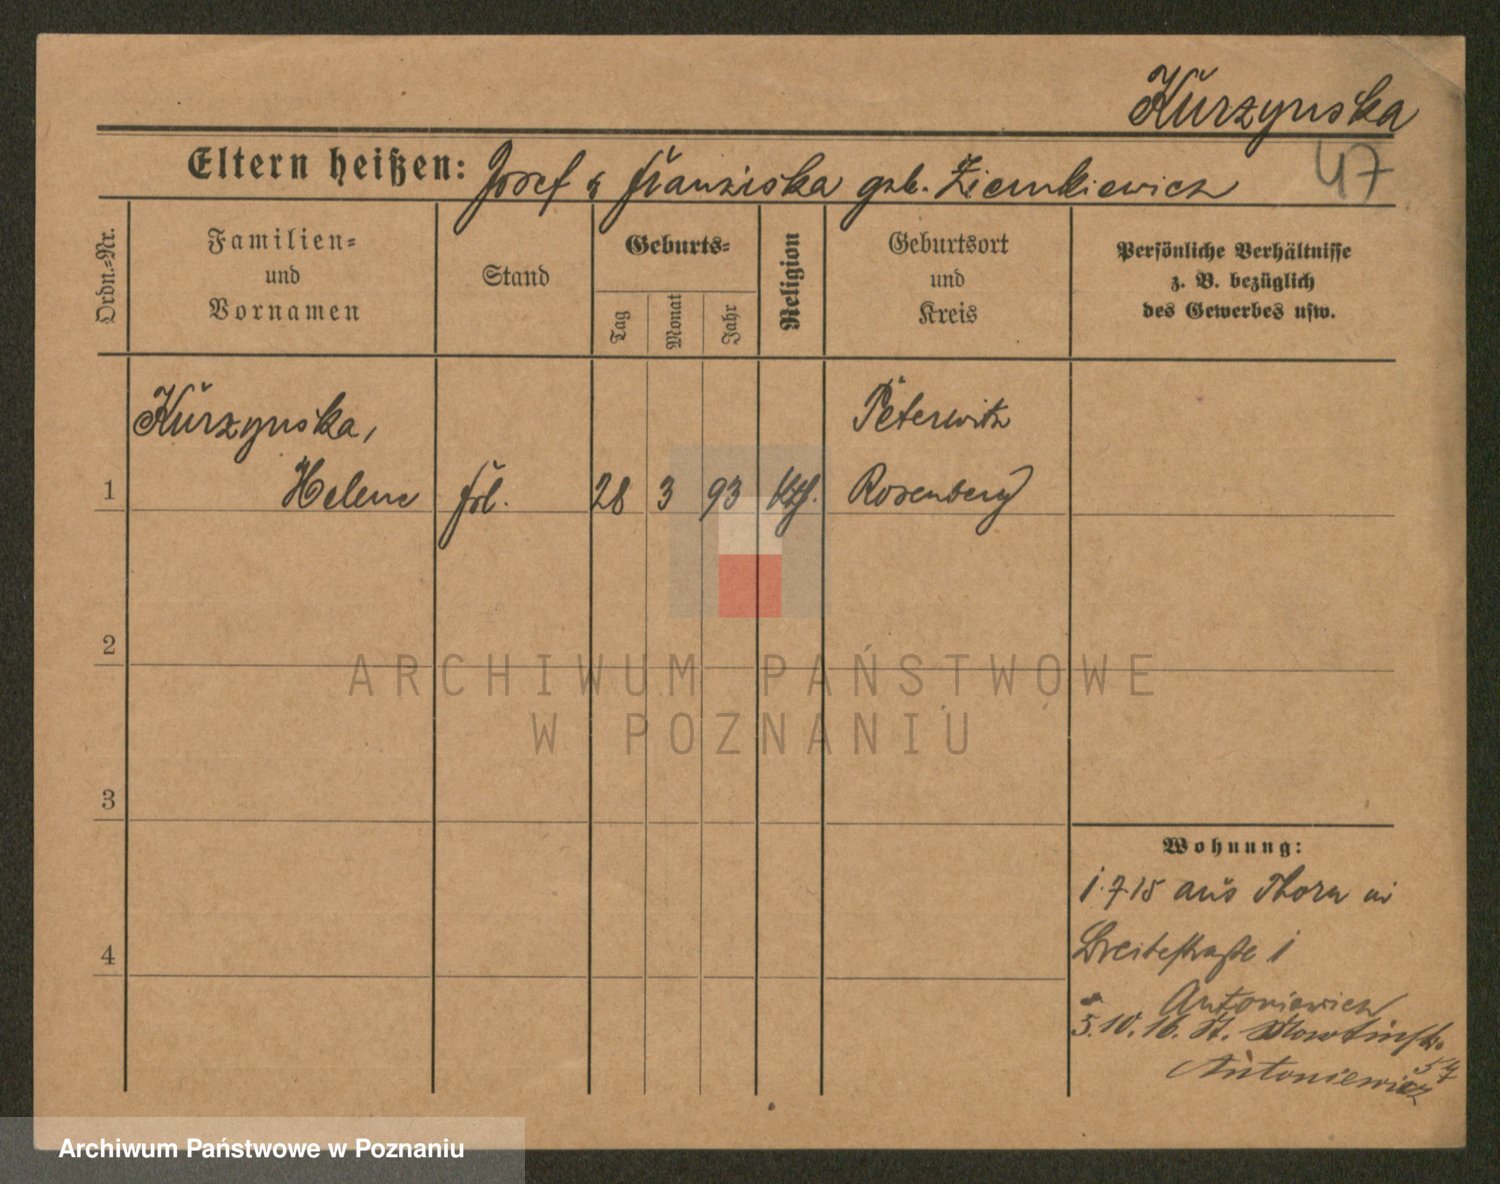 Kurzynska
Eltern heißen: Josef & Franziska geb. Ziemkiewicz
47
Ordn.=Nr.
Familien=
und
Vornamen
Stand
Geburts=
Tag
Monat
Jahr
Religion
Geburtsort
und
Kreis
Persönliche Verhältnisse
z. B. bezüglich
des Gewerbes usw.
Kurzynska,
Peterwitz
1 Helene Frl. 28 3 93 kth. Rosenberg
2
3
4
Wohnung:
1.7.15 aus Thorn in
Breitestraße 1
Antoniewicz
5.10.16. St. Martinstr.
54
Antoniewicz
ARCHIWUM PAŃSTWOWE
W POZNANIU
Archiwum Państwowe w Poznaniu